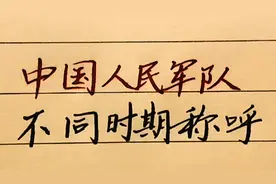 中国人民军队
不同时期称呼